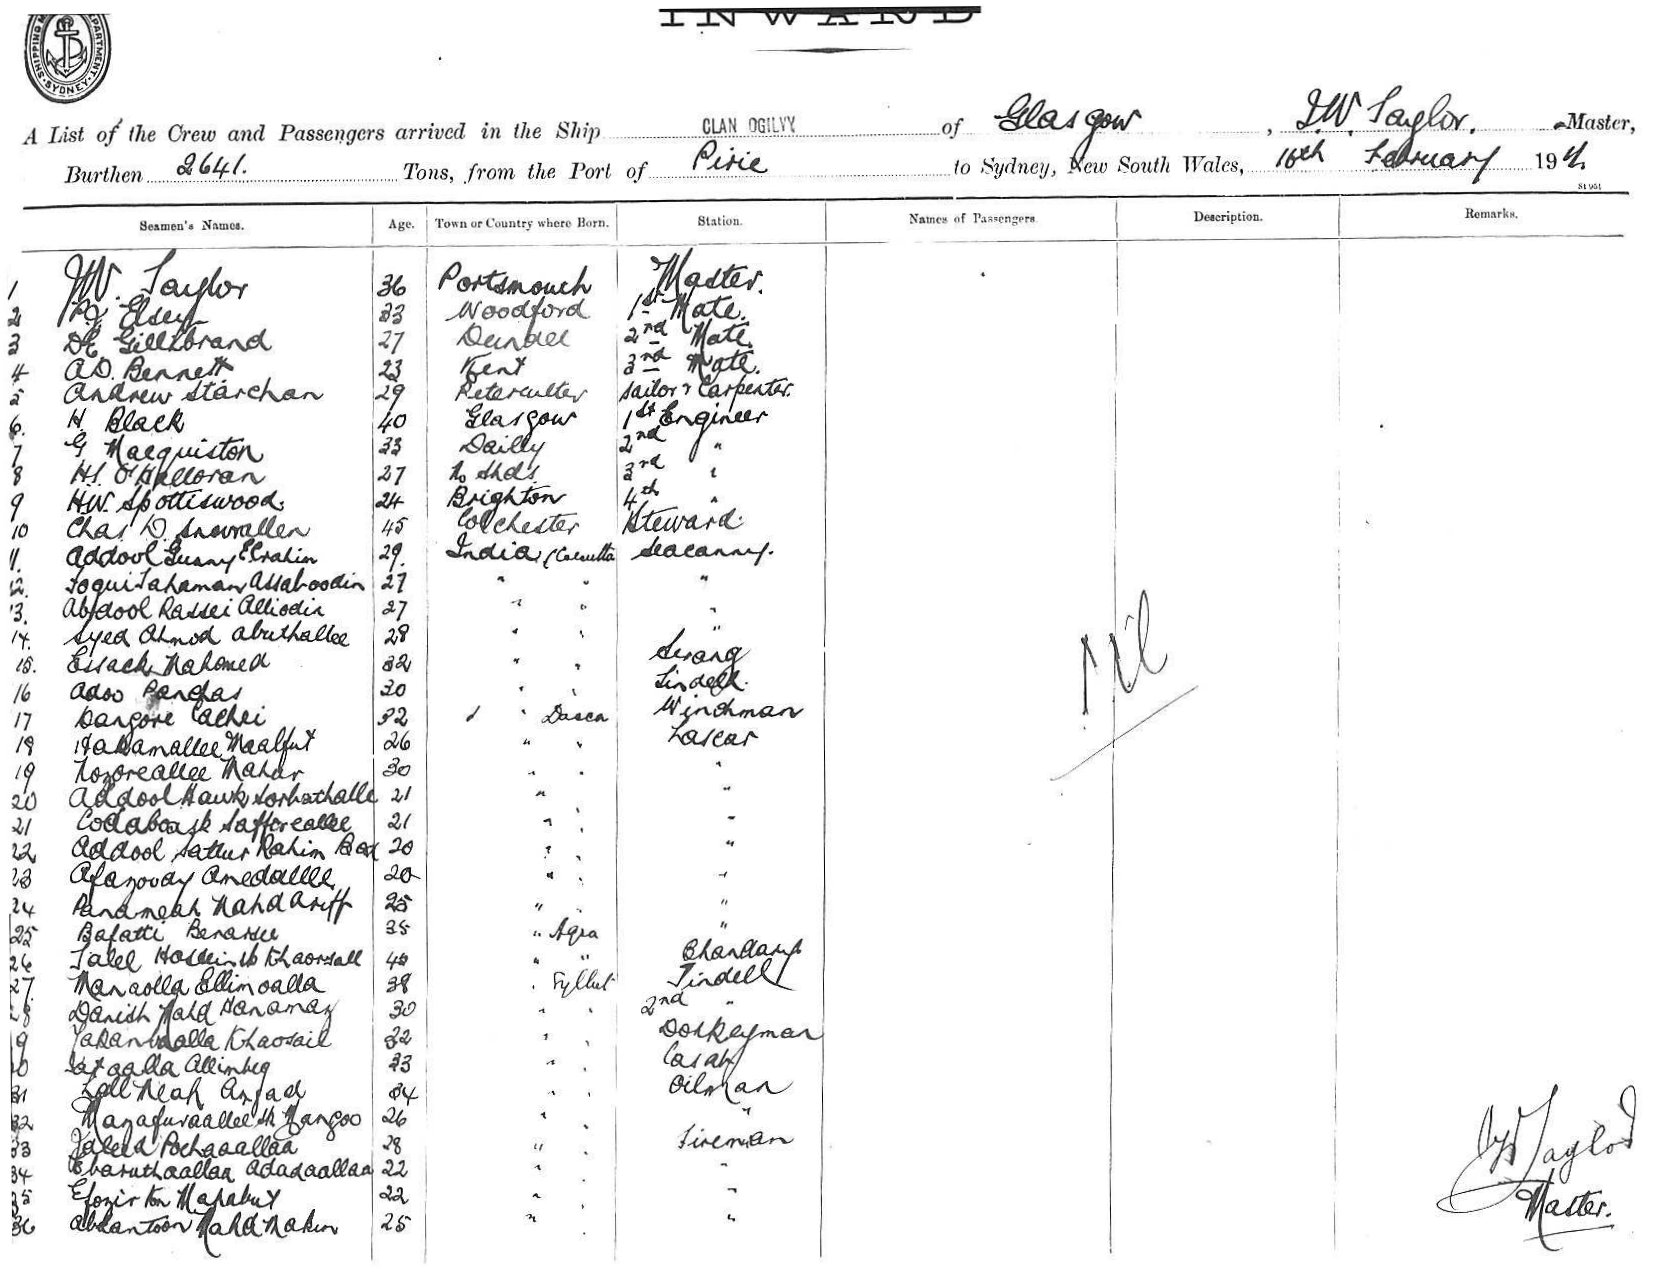 INWARD
SHIPPING DEPARTMENT SYDNEY
A List of the Crew and Passengers arrived in the Ship CLAN OGILVY of Glasgow, J.W. Taylor. Master,
Burthen 2641. Tons, from the Port of Pirie to Sydney, New South Wales, 16th February 19
St 951
Seamen's Names. Age. Town or Country where Born. Station. Names of Passengers Description. Remarks.
1 JW. Taylor 36 Portsmouth Master.
2 Elsey 33 Woodford 1st Mate.
3 Gillibrand 27 Dundee 2nd Mate.
4 A.D. Bennett 23 Kent 3rd Mate.
5 Andrew Starchan 29 Peterculter Sailor & Carpenter.
6. H. Black 40 Glasgow 1st Engineer
7 G Macquiston 33 Dailly 2nd "
8 H.J. O'Halloran 27 No Shds 3rd "
9 H.W. Spottiswood. 24 Brighton 4th "
10 Chas D. Snowallen 45 Colchester Steward.
11. Addool Gunny Ebrahim 29. India (Calcutta Seacunny.
12. Assaboodin 27 " " "
13. Abdool Rassei Alliodin 27 " " "
14. Syed Ahmod Abuthallee 28 " " "
15. Essack Mahomed 32 " " Serang
16 Adoo 30 " " Tindell.
17 Dangore 32 " " Dacca Winchman
18 Maalfut 26 " " Lascar
19 Mahar 30 " " "
20 Addool Hauk Sorbathalle 21 " " "
21 Codaboask Saffereallee 21 " " "
22 Addool Sattur Rahim Box 20 " " "
23 Amedallee 20 " " "
24 Panameah Mahd Ariff 25 " " "
25 Bafatti 35 " Agra "
26 Hossein 40 " " Bhandary
27 Manaolla Ellimoalla 38 " Syllet Tindell
28 Danish Mahd 30 " " 2nd "
29 Khaosail 32 " " Donkeyman
30 Allimbeg 33 " " Casab
31 Lall Meah 34 " " Oilman
32 26 " " "
33 Pochaaallaa 28 " " Fireman
34 Adadaallaa 22 " " "
35 22 " " "
36 Mahd Nakim 25 " " "
Nil
JW Taylor
Master.